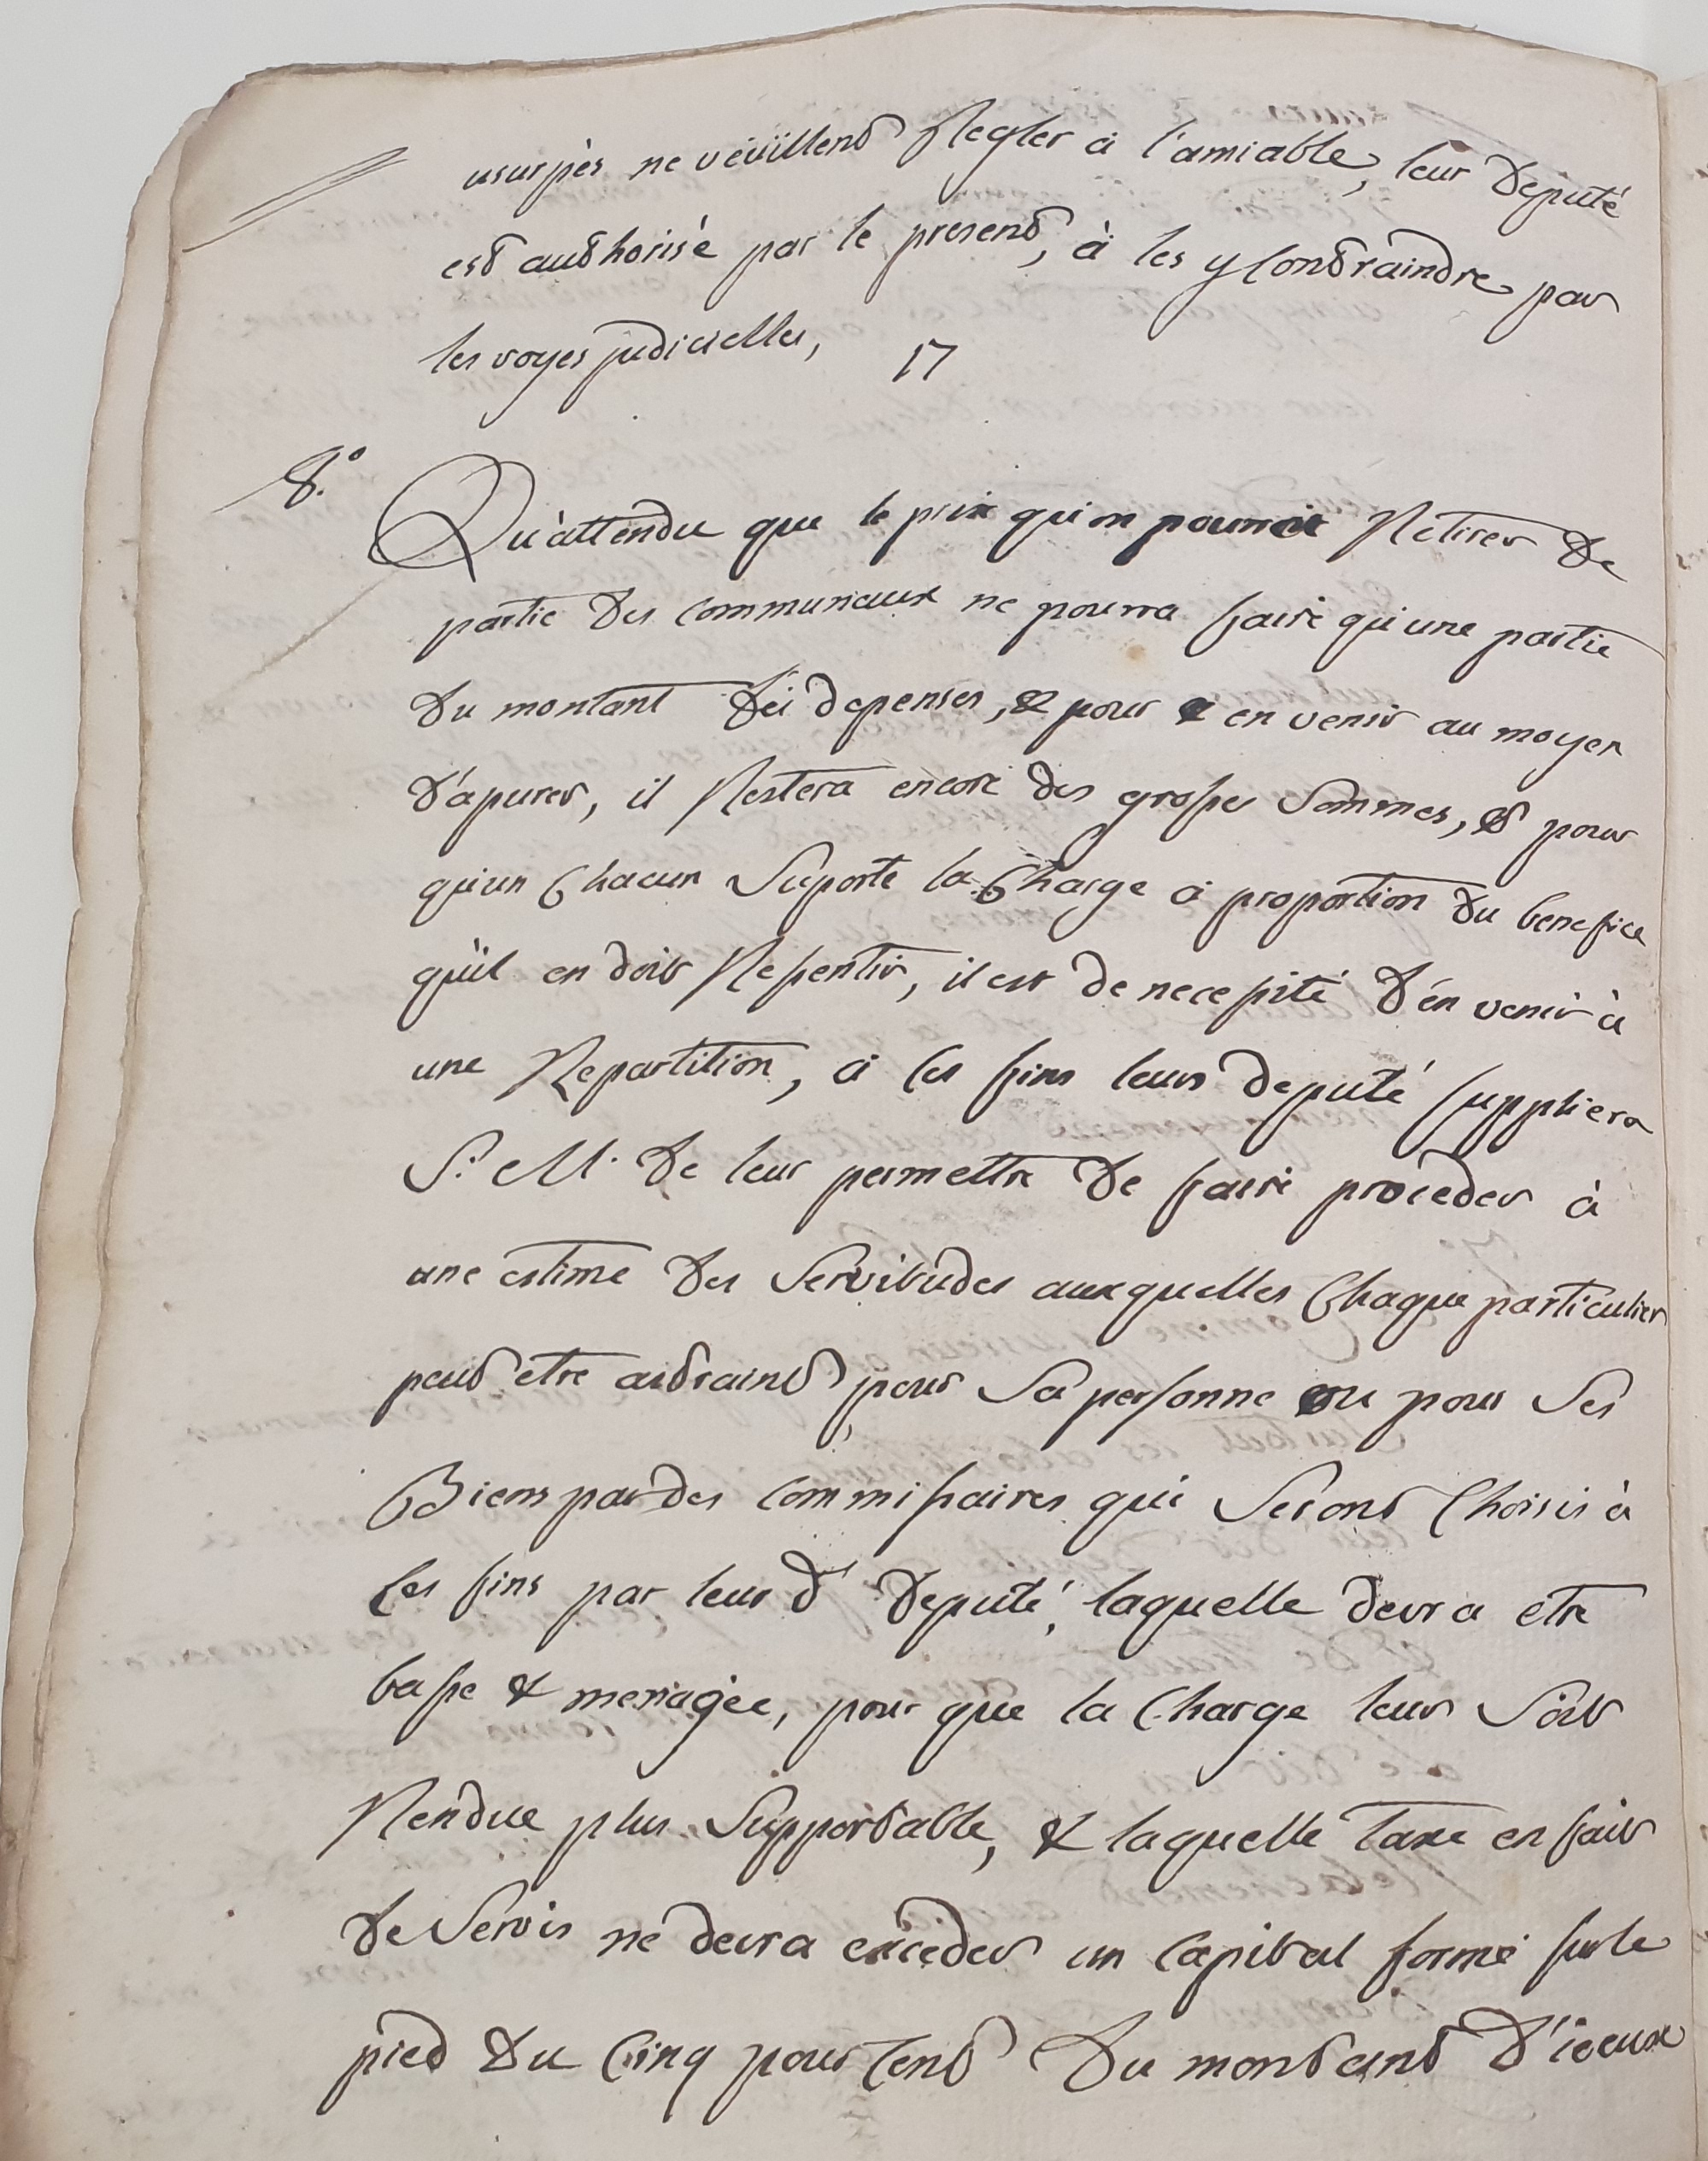 usurpés ne veüillent Regler à l'amiable, leur Deputé
est authorisé par le present, à les y Contraindre par
les voyes judicielles, 17
8.° Qu'attendu que le prix qu'on pourroit Retirer de
partie des Communaux ne pourra faire qu'une partie
du montant des depenses, & pour en venir au moyen
d'apurer, il Restera encore des grosses Sommes, et pour
qu'un Chacun Suporte la Charge à proportion du benefice
qu'il en doit Ressentir, il est de necessité d'en venir à
une Repartition, à ces fins leur deputé suppliera
S. M. de leur permettre de faire proceder à
une estime des Servitudes auxquelles Chaque particulier
peut etre astraint, pour Sa personne ou pour Ses
Biens par des Commissaires qui Seront Choisis à
Ces fins par leur d' Deputé, laquelle devra etre
basse & menagée, pour que la Charge leur Soit
Rendue plus Supportable, & laquelle taxe en fait
de Servis ne devra exceder un Capital formé sur le
pied du Cinq pour Cent du montant d'iceux